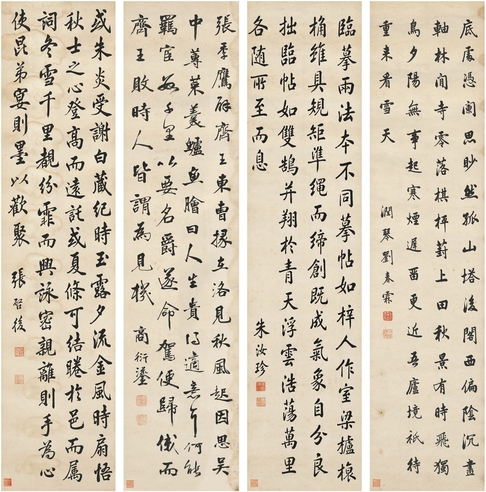 底處憑闌思眇然孤山塔後閣西偏陰沉畫
軸林間寺零落棋枰葑上田秋景有時飛獨
鳥夕陽無事起寒煙遲畱更近吾廬境祇待
重来看雪天 潤琴劉春霖
臨摹兩法本不同摹帖如梓人作室梁櫨榱
桷雖具規矩準繩而締創既成氣象自分良
拙臨帖如雙鵠并翔於青天浮雲浩蕩萬里
各随所至而息 朱汝珍
張季鷹辟齊王東曹掾在洛見秋風起因思吳
中蓴菜羹鱸魚膾曰人生貴得適意尔何能
羈宦數千里以要名爵遂命駕便歸俄而
齊王敗時人皆謂為見機 商衍鎏
或朱炎受謝白藏紀時玉露夕流金風時扇悟
秋士之心登高而遠託或夏條可結睠於邑而属
詞冬雪千里覩紛霏而興詠密親離則手為心
使昆弟宴則墨以歡聚 張啓後